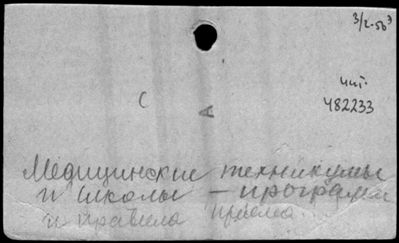 3/2-56³
чит.
482233
С
А
Медицинские техникумы
и школы — програм
и правила приема.